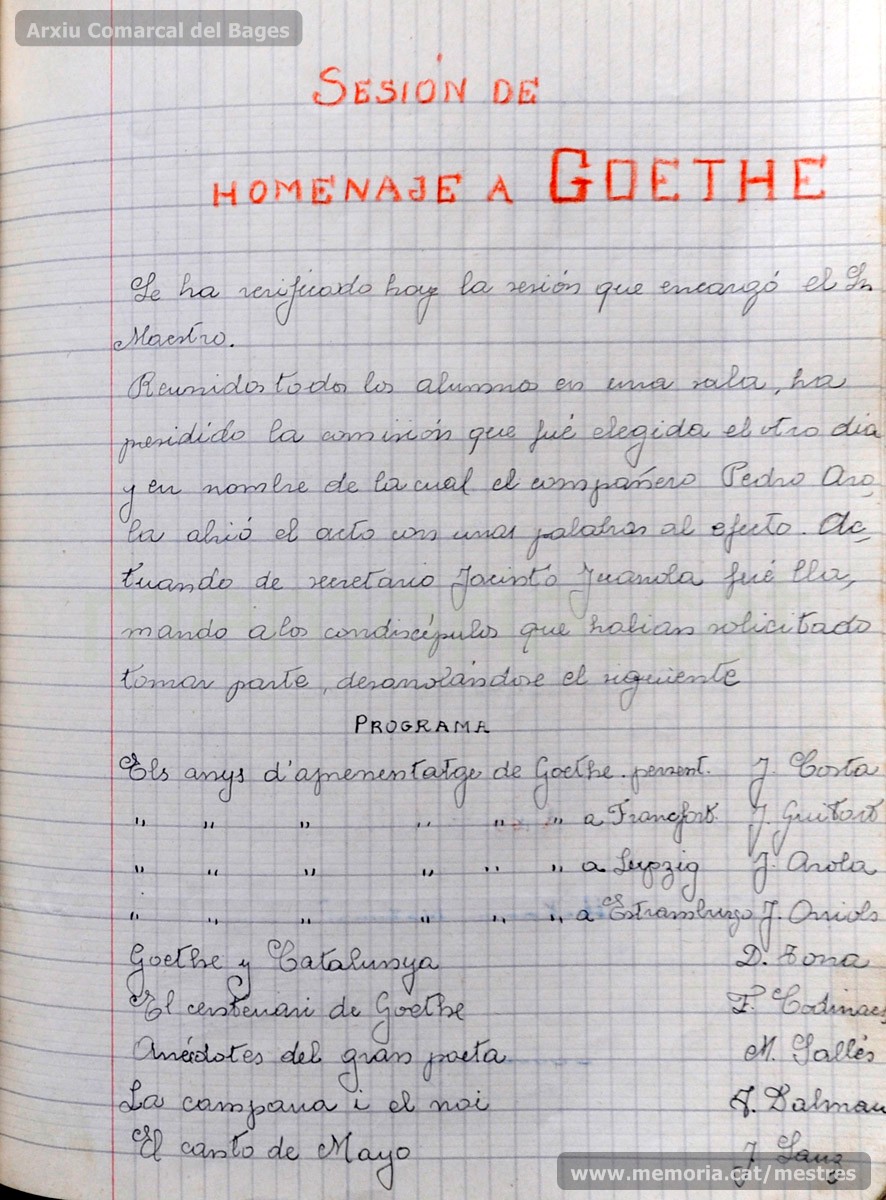 Arxiu Comarcal del Bages
SESIÓN DE
HOMENAJE A GOETHE
Se ha verificado hoy la sesión que encargó el Sr
Maestro.
Reunidos todos los alumnos en una sala, ha
presidido la comisión que fué elegida el otro dia
y en nombre de la cual el compañero Pedro Aro-
la abrió el acto con unas palabras al efecto. Ac-
tuando de secretario Jacinto Juanola fué lla-
mando a los condiscípulos que habian solicitado
tomar parte, desarrolándose el siguiente
PROGRAMA
Els anys d'aprenentatge de Goethe. persent. J. Costa
" " " " " " a Francfort. J. Guitart
" " " " " " a Leipzig J. Arola
" " " " " " a Estramburgo J. Orriols
Goethe y Catalunya D. Tona
El centenari de Goethe F. Codinacs
Anécdotes del gran poeta M. Sallés
La campana i el noi J. Dalmau
El canto de Mayo J. Sanz
www.memoria.cat/mestres